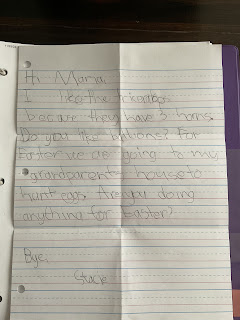 Hi Mama
I like the
because they have 3 horns.
Do you like
For
Easter we are going to my
grandparents house to
hunt eggs. Are you doing
anything for Easter?
Bye,